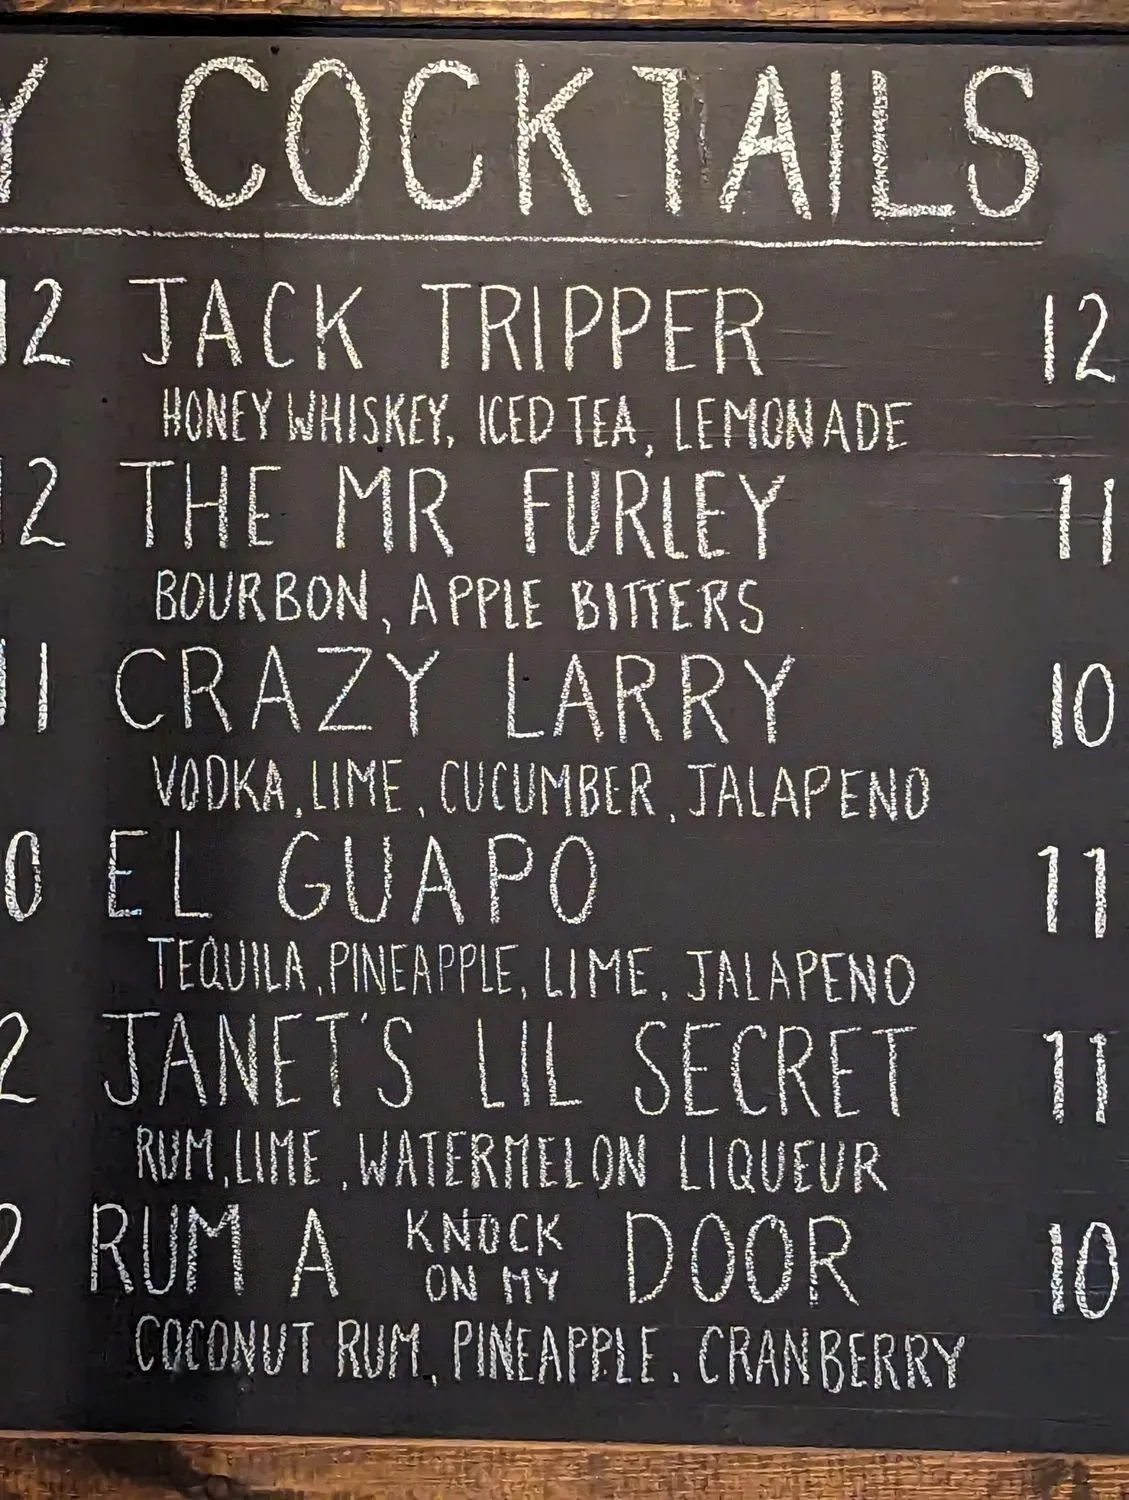 Y COCKTAILS
12 JACK TRIPPER 12
HONEY WHISKEY, ICED TEA, LEMONADE
12 THE MR FURLEY 11
BOURBON, APPLE BITTERS
11 CRAZY LARRY 10
VODKA, LIME, CUCUMBER, JALAPENO
0 EL GUAPO 11
TEQUILA, PINEAPPLE, LIME, JALAPENO
2 JANET'S LIL SECRET 11
RUM, LIME, WATERMELON LIQUEUR
2 RUM A KNOCK ON MY DOOR 10
COCONUT RUM, PINEAPPLE, CRANBERRY